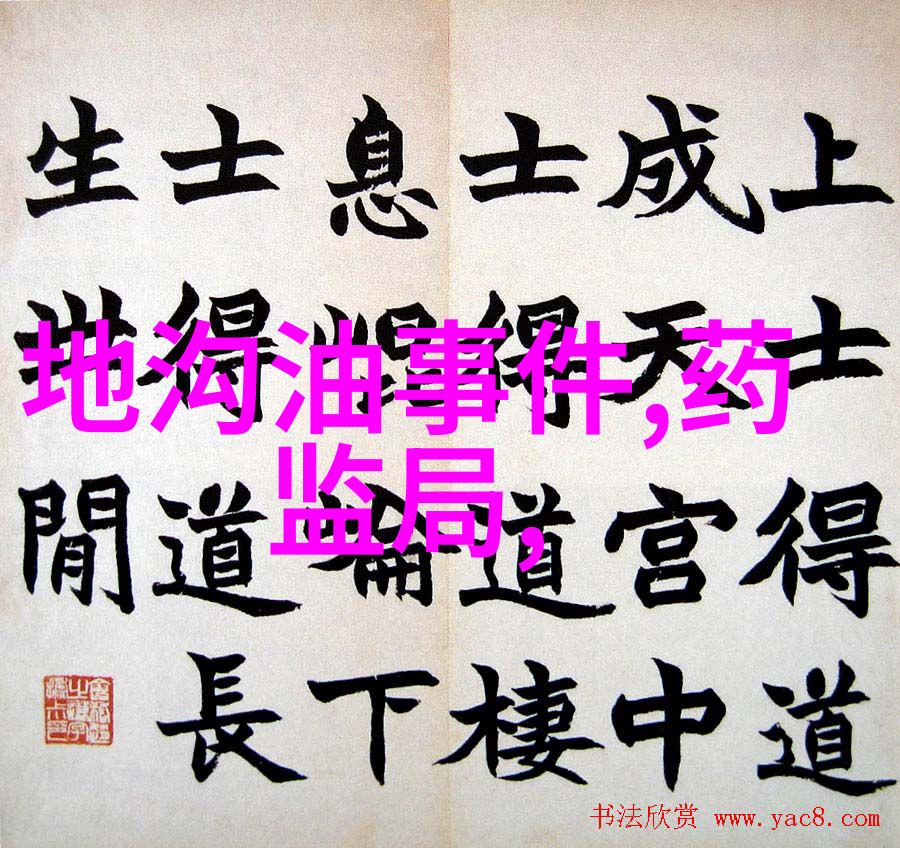 地沟油事件,药
监局,
上士得道
成天宮中
士得道棲
息崐崘下
士得道長
生世閒
书法欣赏 www.yac8.com